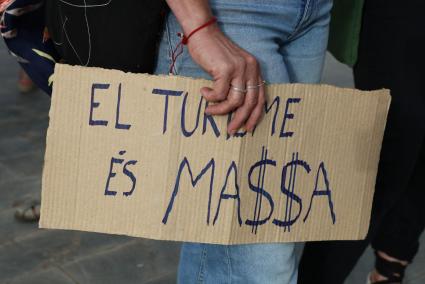 EL TURISME
ÉS MA$$A